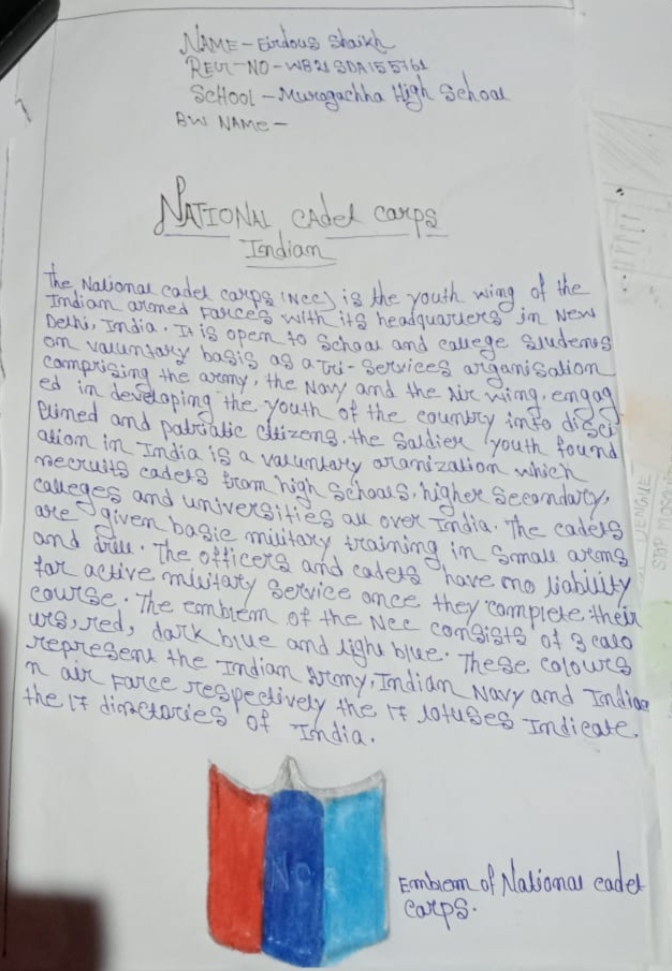 NAME - Eirdous Shaikh
REGI-NO - WB21SDA155761
SCHOOL - Muragachha High School
BW NAME -
NATIONAL cadet carps
Indian
The National cadet carps (NCC) is the youth wing of the
Indian armed Farces with its headquariers in New
Delhi, India. It is open to School and callege Students
on valuntary basis as a Tri-Services arganisation
camprising the army, the Navy and the Air wing, engag
ed in developing the youth of the country into disci
plined and patriatic citizens. the Saldier youth found
ation in India is a valuntary aranization which
recruits cadets from high Schools, higher Secondary,
calleges and universities all over India. The cadets
are given basic military training in Small arms
and drill. The officers and cadets have no liability
far active military Service once they complete their
course. The emblem of the NCC consists of 3 calo
urs, red, dark blue and light blue. These colours
represent the Indian Army, Indian Navy and India
n air Farce respectively the 17 lotuses Indicate
the 17 directaries of India.
NCC
Emblem of National cadet
carps.